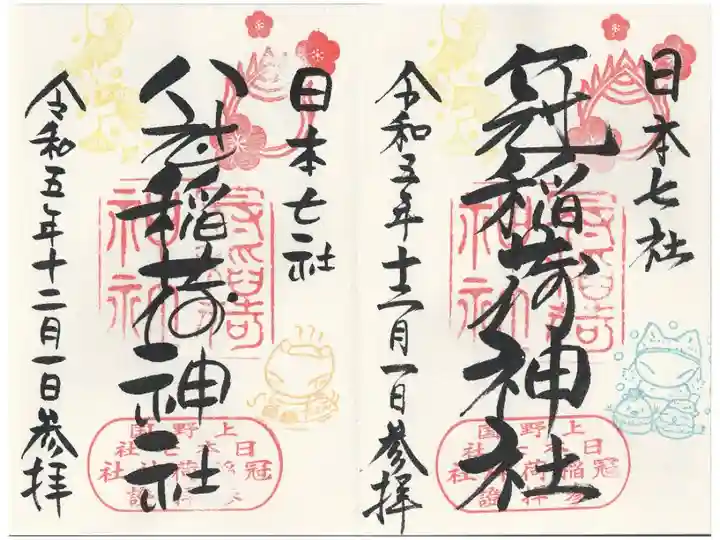 日本七社
冠稲荷神社
令和五年十二月一日参拝
上野国
日本七社
冠稲荷神社
令和五年十二月一日参拝
上野国